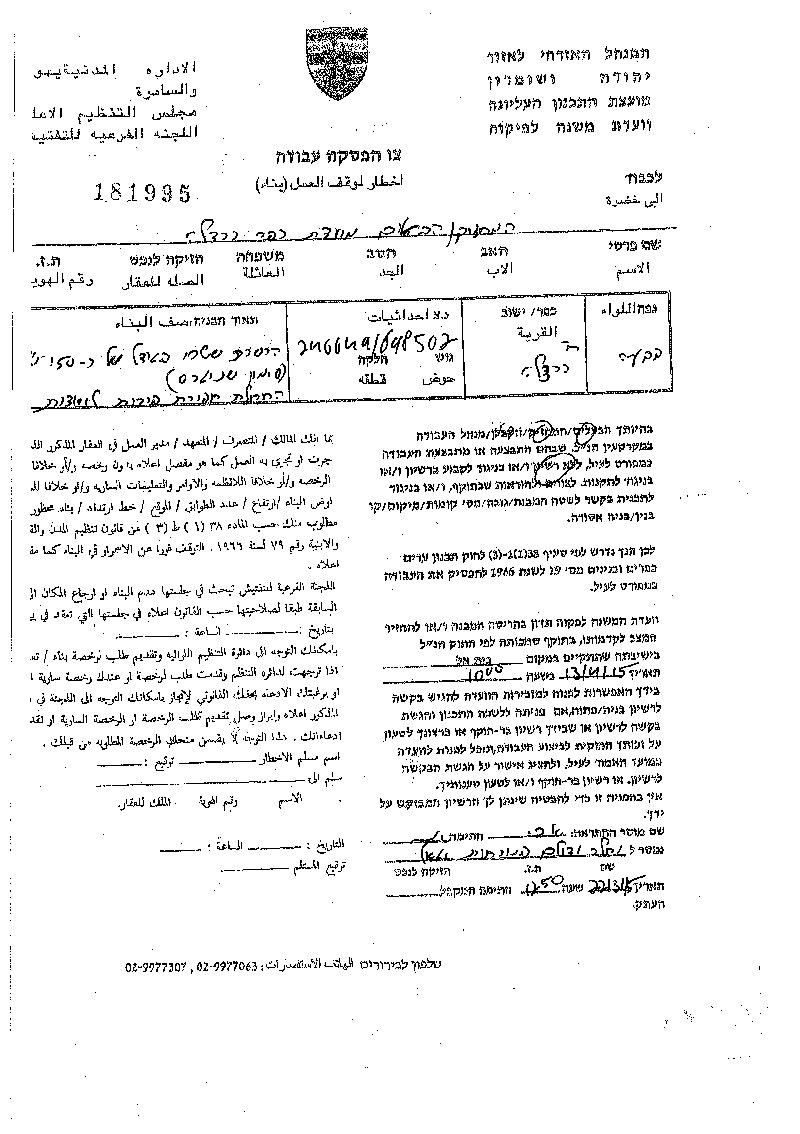 המנהל האזרחי לאזור
יהודה ושומרון
מועצת התכנון העליונה
וועדת משנה לפיקוח
الاداره المدنية يهو
والسامرة
مجلس التنظيم الاعل
اللجنه الفرعيه للتفتيش
צו הפסקת עבודה
اخطار لوقف العمل (بناء)
181995
לכבוד
الى حضرة
שם פרטי האב הסב משפחה הזיקה לנכס ת.ז.
الاسم الاب الجد العائلة الصله للعقار رقم الهوية
נפה/اللواء כפר/ישוב נ.צ احداثيات תאור הבניה/وصف البناء
القرية
246649/698502
גוש חלקה
حوض قطعه
ברדלה
בהיותך הבעלים/המחזיק/הקבלן/מנהל העבודה
במקרקעין הנ"ל, שבהם התבצעה או מתבצעת העבודה
כמפורט לעיל, ללא רשיון ו/או בניגוד לקבוע ברשיון ו/או
בניגוד לתקנות, לצווים ולהוראות שבתוקף, ו/או בניגוד
לתכנית בקשר לשטח המבנה/גובה/מס' קומות/מיקום/קו
בנין/בניה אסורה.
לכן הנך נדרש לפי סעיף 38(1)-(3) לחוק תכנון ערים
כפרים ובנינים מס' 79 לשנת 1966 להפסיק את העבודה
כמפורט לעיל.
וועדת המשנה לפקוח תדון בהריסת המבנה ו/או להחזיר
המצב לקדמותו, בתוקף סמכותה לפי החוק הנ"ל
בישיבתה שתתקיים במקום בית אל
תאריך 13/4/15 בשעה 10:00
בידך האפשרות לפנות למזכירות הוועדה להגיש בקשה
לרשיון בניה/פתוח, אם פניתה ללשכת התכנון והגשת
בקשה לרשיון או שבידך רשיון בר-תוקף או ברצונך לטעון
על זכותך החוקית לביצוע העבודה, תוכל לפנות לוועדה
במועד האמור לעיל, ולהציג אישור על הגשת הבקשה
לרשיון, או רשיון בר-תוקף ו/או לטעון טענותיך.
אין בהפניה זו כדי להבטיח שינתן לך הרשיון המבוקש על
ידך.
שם מוסר ההתראה: חתימה
נמסר ל
שם ת.ז. הזיקה לנכס
תאריך 22/3/15 שעה 12:50 חתימת המקבל
העתק.
بما انك المالك / المتصرف / المتعهد / مدير العمل في العقار المذكور الذ
جرت او تجري به العمل كما هو مفصل اعلاه بدون رخصه و/أو خلافا
الرخصه و/أو خلافا للانظمه والاوامر والتعليمات الساريه و/او خلافا للم
لوض البناء / ارتفاع / عدد الطوابق / الموقع / خط ارتداد / بناء محظور
مطلوب منك حسب الماده ٣٨ (١) ط (٣) من قانون تنظيم المدن والقر
والابنية رقم ٧٩ لسنة ١٩٦٦ . التوقف فورا عن الاستمرار في البناء كما مف
اعلاه .
اللجنة الفرعية للتفتيش تبحث في جلستها هدم البناء او ارجاع المكان ال
السابقة طبقا لصلاحيتها حسب القانون اعلاه في جلستها التي تعقد في
بتاريخ : الساعة :
بامكانك التوجه الى دائرة التنظيم اللوائيه وتقديم طلب لرخصة بناء / تط
اذا توجهت لدائره التنظيم وقدمت طلب لرخصة او عندك رخصة سارية
او برغبتك الادعاء بحقك القانوني لانجاز بامكانك التوجه الى اللجنة في
المذكور اعلاه وابراز وصل بتقديم طلب لرخصة او الرخصة السارية او لتقد
ادعاءاتك . هذا التوجه لا يضمن منحك الرخصة المطلوبه من قبلك .
اسم مسلم الاخطار توقيع :
سلم الى
الاسم رقم الهوية الملك للعقار.
التاريخ : الساعة :
توقيع المستلم
טלפון לבירורים الهاتف للاستفسارات: 02-9977063 , 02-9977307